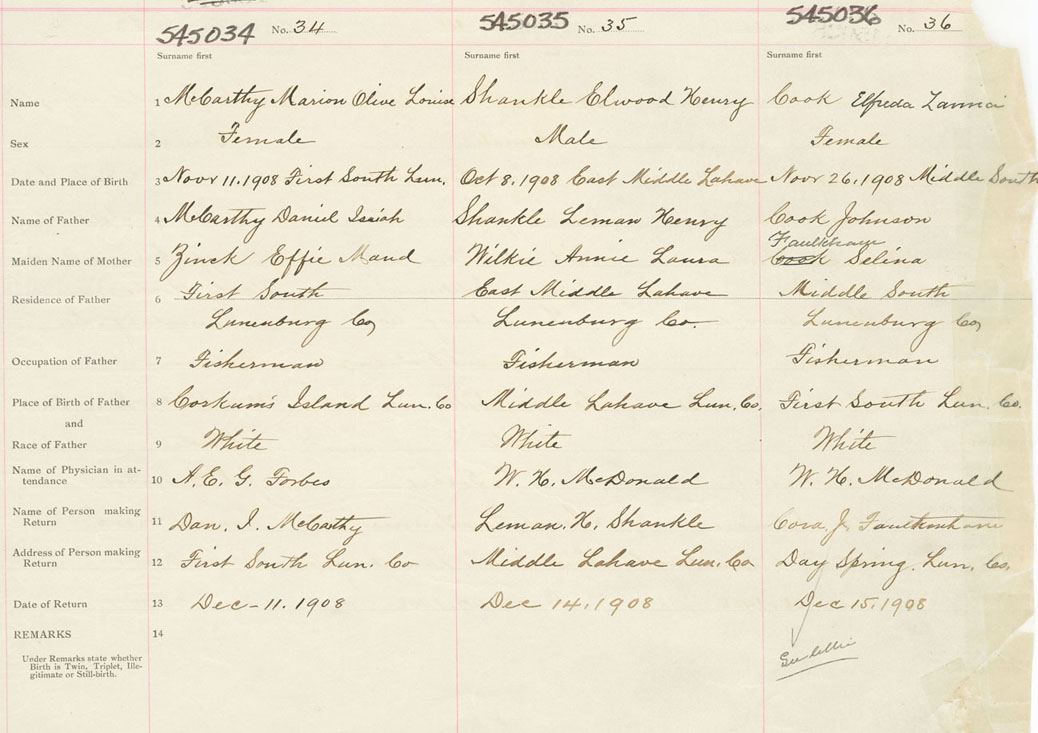 545034 No. 34 545035 No. 35 545036 No. 36
Surname first Surname first Surname first
Name 1 McCarthy Marion Olive Louise Shankle Elwood Henry Cook Elfreda
Sex 2 Female Male Female
Date and Place of Birth 3 Novr 11.1908 First South Lun. Oct 8.1908 East Middle Lahave Novr 26.1908 Middle South
Name of Father 4 McCarthy Daniel Isaiah Shankle Leman Henry Cook Johnson
Maiden Name of Mother 5 Zinck Effie Maud Wilkie Annie Laura Cook Selina
Residence of Father 6 First South East Middle Lahave Middle South
Lunenburg Co Lunenburg Co. Lunenburg Co
Occupation of Father 7 Fisherman Fisherman Fisherman
Place of Birth of Father 8 Corkum's Island Lun. Co Middle Lahave Lun. Co. First South Lun. Co.
and
Race of Father 9 White White White
Name of Physician in at-
tendance 10 A. E. G. Forbes W. H. McDonald W. H. McDonald
Name of Person making
Return 11 Dan. I. McCarthy Leman. H. Shankle Cora J.
Address of Person making
Return 12 First South Lun. Co Middle Lahave Lun. Co Day Spring. Lun. Co.
Date of Return 13 Dec-11.1908 Dec 14.1908 Dec 15.1908
REMARKS 14
Under Remarks state whether
Birth is Twin, Triplet, Ille-
gitimate or Still-birth.